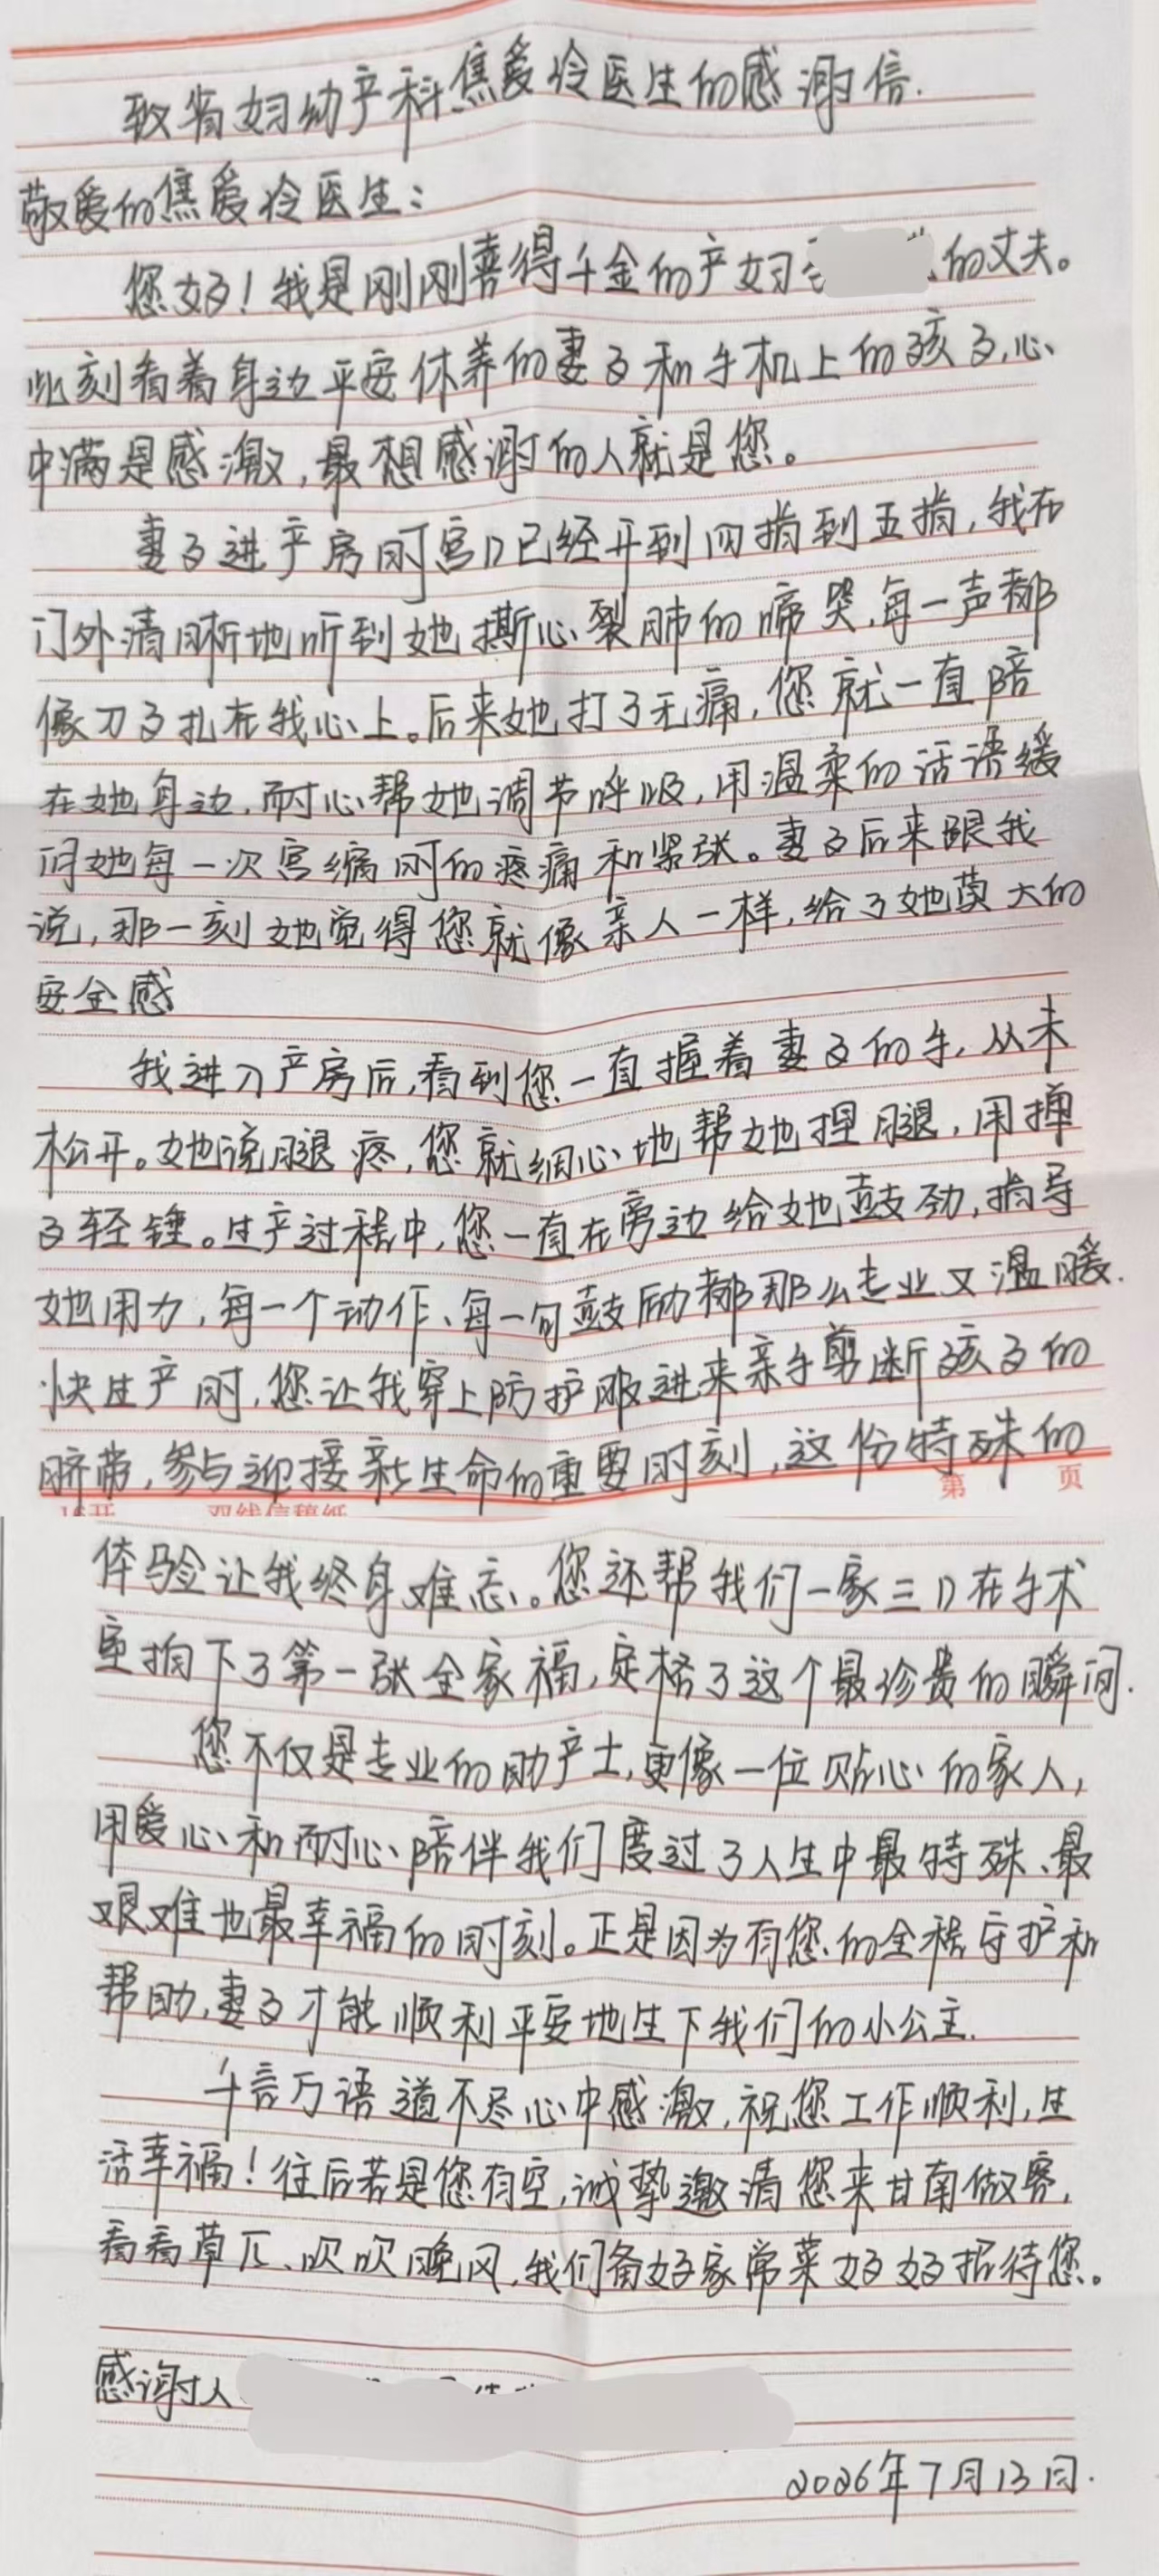 致省妇幼产科焦爱冷医生的感谢信.
敬爱的焦爱冷医生:
您好!我是刚刚喜得千金的产妇的丈夫。
此刻看着身边平安休养的妻子和手机上的孩子,心
中满是感激,最想感谢的人就是您。
妻子进产房时宫口已经开到四指到五指,我在
门外清晰地听到她撕心裂肺的啼哭,每一声都
像刀子扎在我心上。后来她打了无痛,您就一直陪
在她身边,耐心帮她调节呼吸,用温柔的话语缓
解她每一次宫缩时的疼痛和紧张。妻子后来跟我
说,那一刻她觉得您就像亲人一样,给了她莫大的
安全感
我进入产房后,看到您一直握着妻子的手,从未
松开。她说腿疼,您就细心地帮她捏腿,用掸
子轻锤。生产过程中,您一直在旁边给她鼓劲,指导
她用力,每一个动作、每一句鼓励都那么专业又温暖.
快生产时,您让我穿上防护服进来亲手剪断孩子的
脐带,参与迎接新生命的重要时刻,这份特殊的
16开 双线信稿纸 第 页
体验让我终身难忘。您还帮我们一家三口在手术
室拍下了第一张全家福,定格了这个最珍贵的瞬间.
您不仅是专业的助产士,更像一位贴心的家人,
用爱心和耐心陪伴我们度过了人生中最特殊、最
艰难也最幸福的时刻。正是因为有您的全程守护和
帮助,妻子才能顺利平安地生下我们的小公主.
千言万语道不尽心中感激,祝您工作顺利,生
活幸福!往后若是您有空,诚挚邀请您来甘南做客,
看看草原、吹吹晚风,我们备好家常菜好好招待您。
感谢人
2026年7月13日.